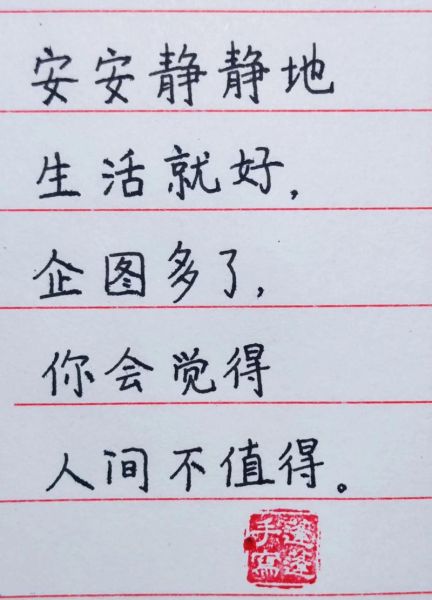 安安静静地
生活就好，
企图多了，
你会觉得
人间不值得。
蓬蓬
手写